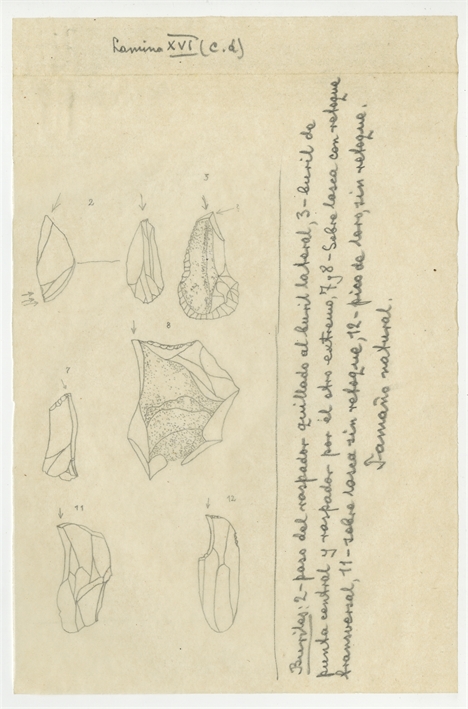 Lamina XVI (C.d)
3
2
8
7
12
11
Buriles: 2-paso del raspador quillado al buril lateral, 3-buril de
punta central y raspador por el otro extremo, 7 y 8-Sobre lasca con retoque
transversal, 11-sobre lasca sin retoque, 12-pico de loro, sin retoque.
Tamaño natural.